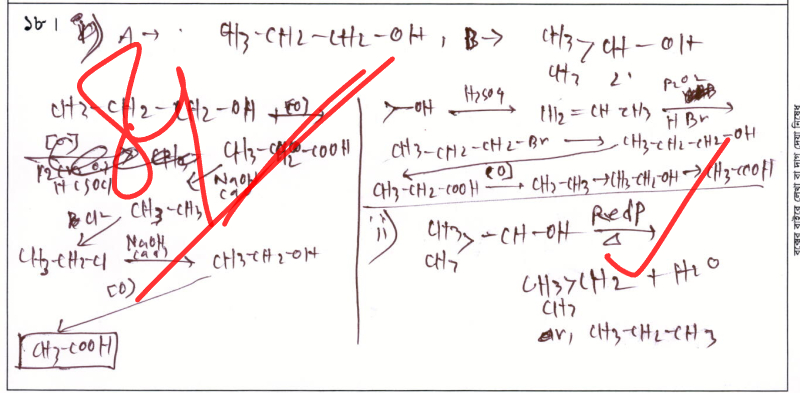 ১৮।
A → CH3-CH2-CH2-OH, B → CH3 > CH-OH
CH3
CH3-CH2-CH2-OH [O]
[O]
CH3-CH2-COOH
NaOH
CaO
CH3-CH3
Cl2
CH3-CH2-Cl NaOH (aq) CH3-CH2-OH
[O]
CH3-COOH
>-OH H2SO4 CH2=CH-CH3 R2O2 HBr
CH3-CH2-CH2-Br → CH3-CH2-CH2-OH
[O]
CH3-CH2-COOH → CH3-CH3 → CH3-CH2-OH → CH3-COOH
ii) CH3 > -CH-OH Red P Δ
CH3
CH3 > CH2 + H2O
CH3
or, CH3-CH2-CH3
বক্সের বাইরে লেখা বা দাগ দেয়া নিষেধ